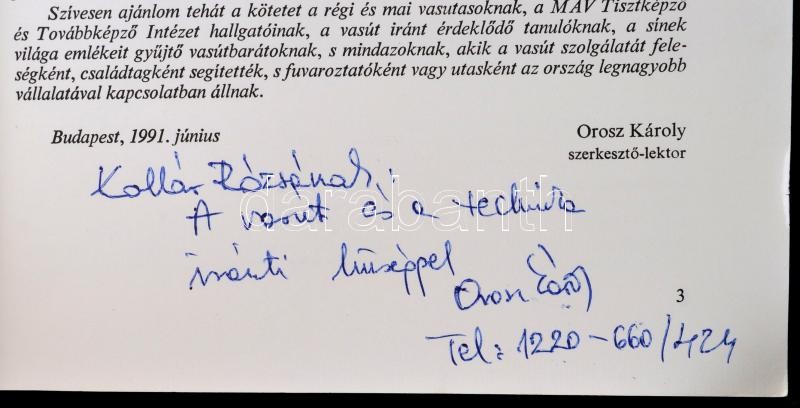 Szívesen ajánlom tehát a kötetet a régi és mai vasutasoknak, a MÁV Tisztképző
és Továbbképző Intézet hallgatóinak, a vasút iránt érdeklődő tanulóknak, a sínek
világa emlékeit gyűjtő vasútbarátoknak, s mindazoknak, akik a vasút szolgálatát fele-
ségként, családtagként segítették, s fuvaroztatóként vagy utasként az ország legnagyobb
vállalatával kapcsolatban állnak.
Budapest, 1991. június
Orosz Károly
szerkesztő-lektor
Kollár Rózsának!
A vasút és a technika
iránti hűséggel
Orosz Károly
3
Tel: 1220-660/424
darabanth.com